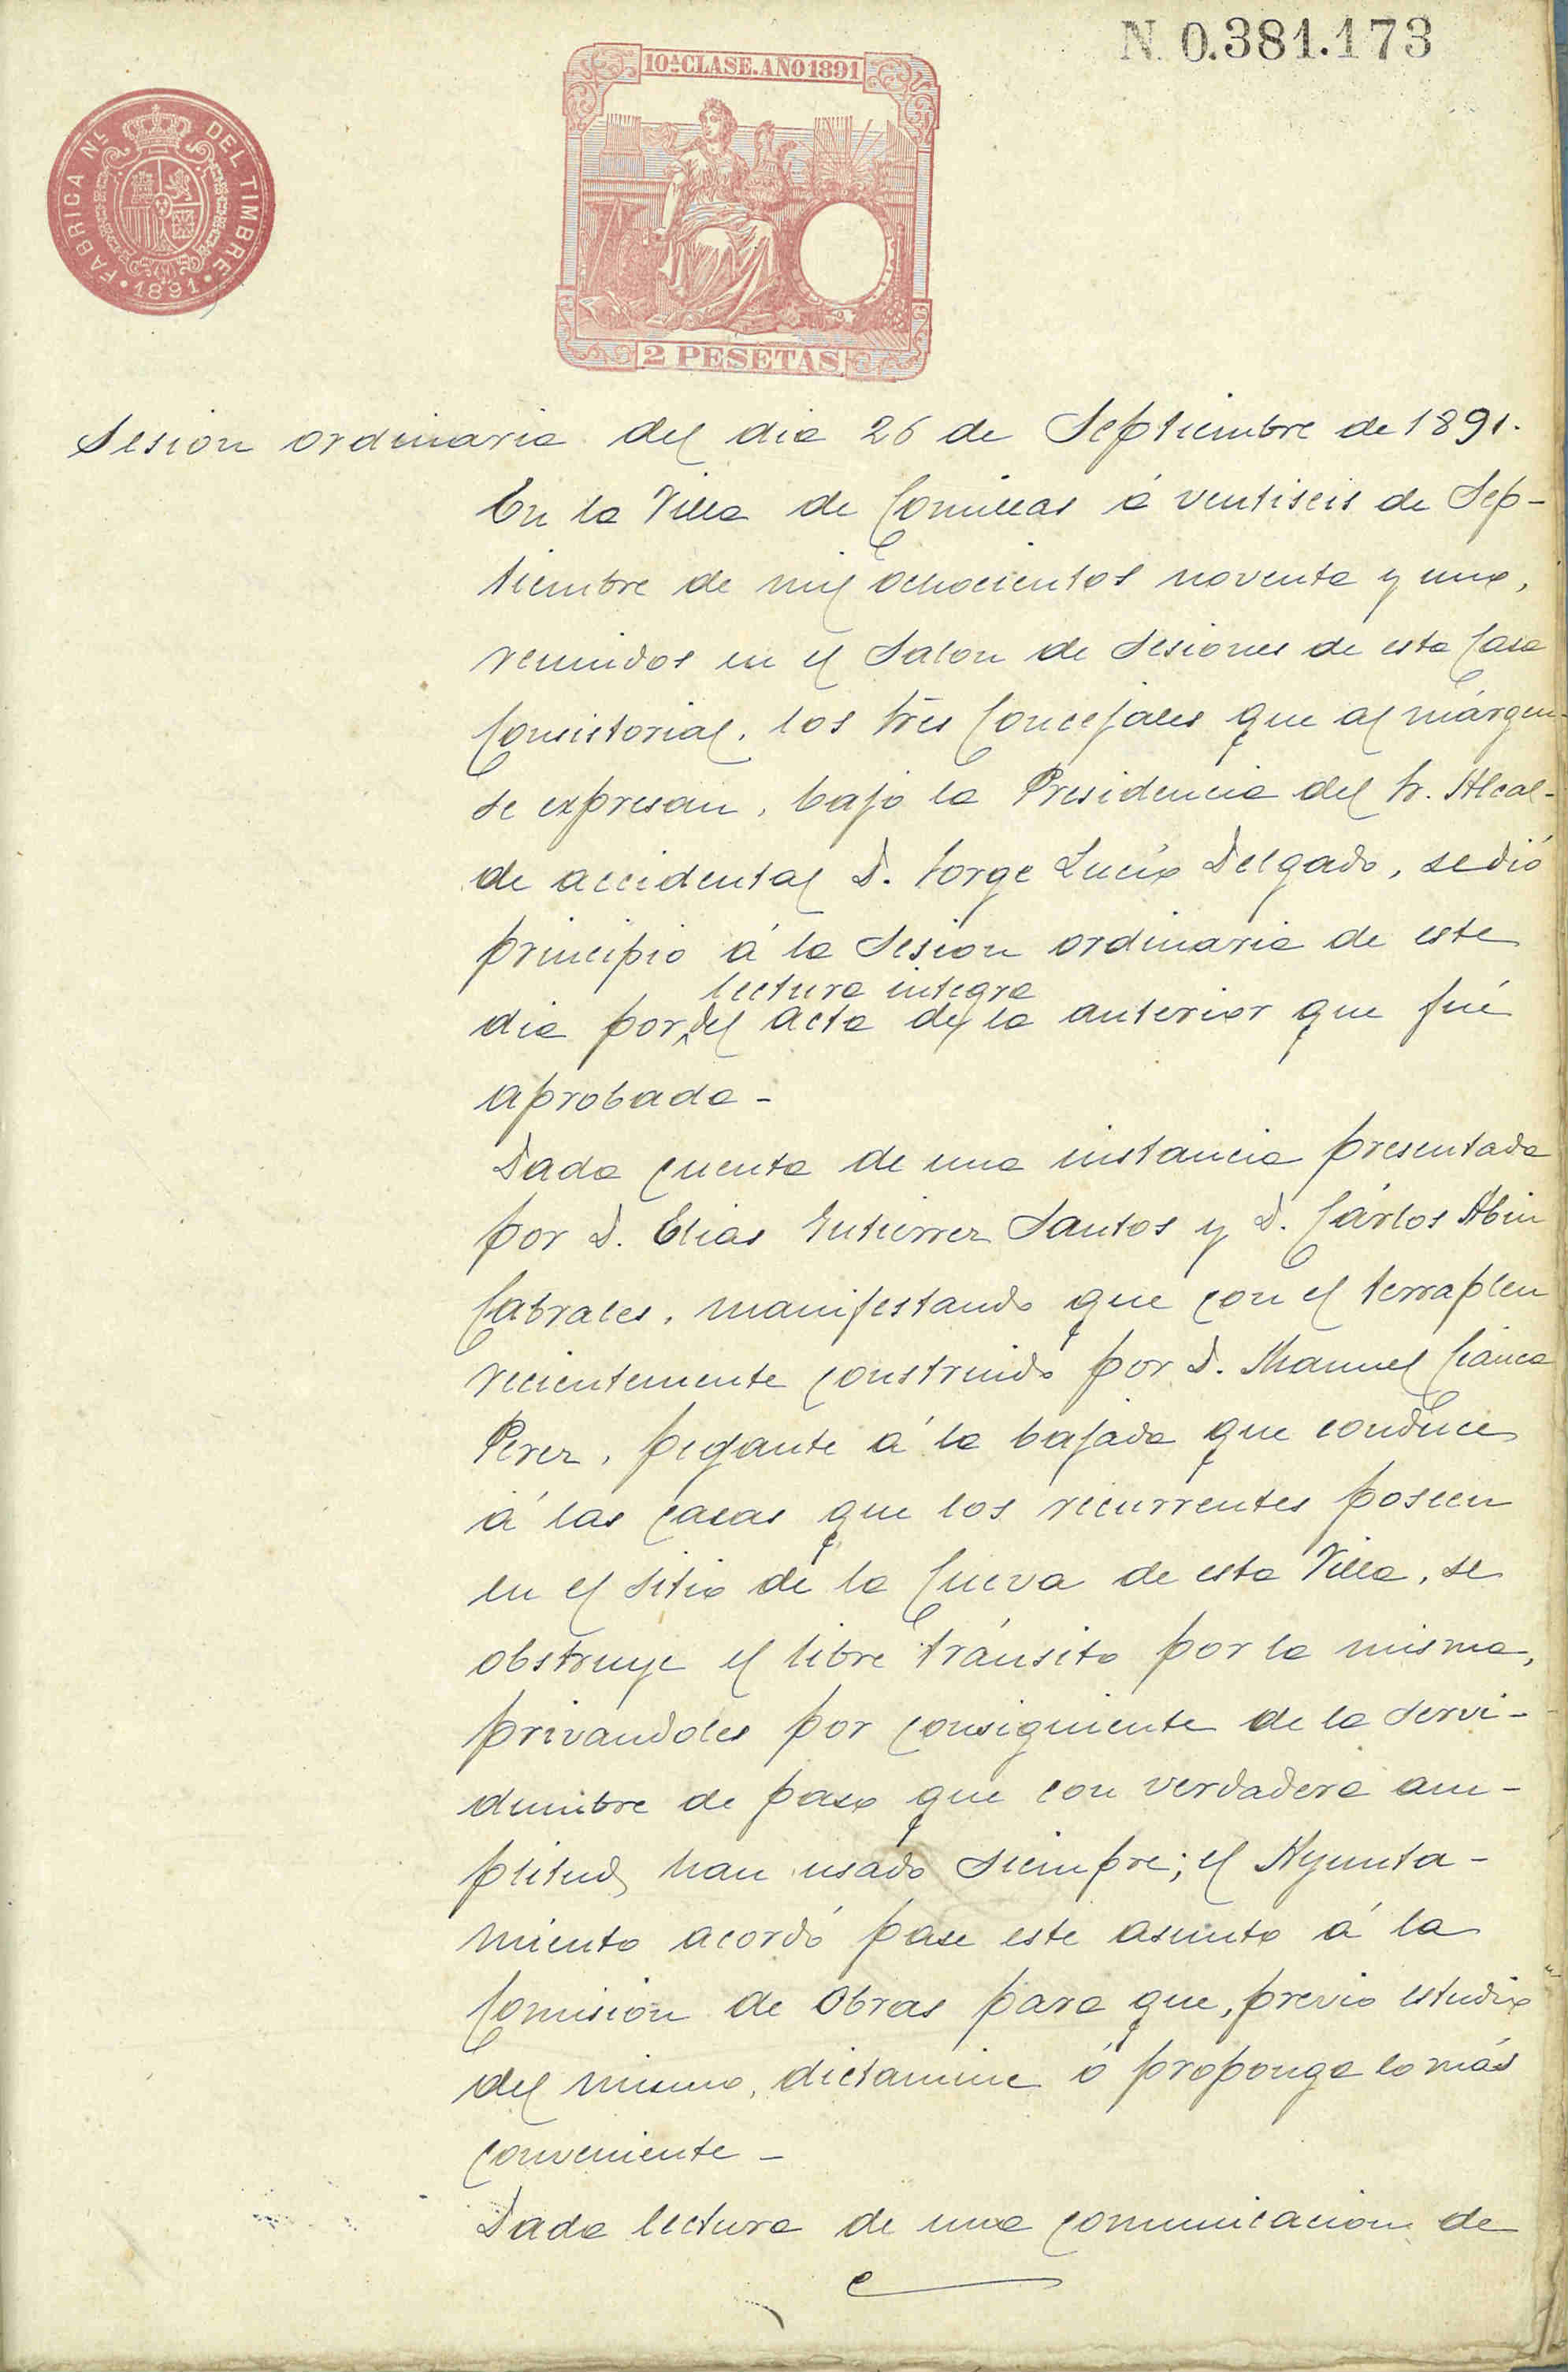 N. 0.381.173
10ª CLASE. AÑO 1891
FABRICA NL DEL TIMBRE
· 1891 ·
2 PESETAS
Sesion ordinaria del dia 26 de Septiembre de 1891.
En la Villa de Comillas á ventiseis de Sep-
tiembre de mil ochocientos noventa y uno,
reunidos en el Salon de Sesiones de esta Casa
Consistorial, los trés Concejales que al márgen
se expresan, bajo la Presidencia del Sr. Alcal-
de accidental D. Jorge Lucio Delgado, se dió
principio á la Sesion ordinaria de este
lectura integra
dia por ^ del acta de la anterior que fué
aprobada -
Dada cuenta de una instancia presentada
por D. Elias Gutierrez Santos y D. Cárlos Abin
Cabrales, manifestando que con el terraplen
recientemente construido por D. Manuel Cianca
Perez, pegante á la bajada que conduce
á las casas que los recurrentes poseen
en el sitio de la Cueva de esta Villa, se
obstruye el libre tránsito por la misma,
privandoles por consiguiente de la servi-
dumbre de paso que con verdadera am-
plitud han usado siempre; el Ayunta-
miento acordó pase este asunto á la
Comision de Obras para que, previo estudio
del mismo, dictamine ó proponga lo más
conveniente -
Dada lectura de una comunicacion de